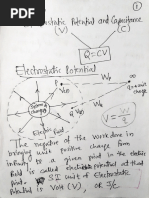 Electrostatic Potential and Capacitance
(V) (C)
Q=CV
Electrostatic Potential
Electric field
The negative of the work done in
bringing unit positive charge from
infinity to a given point in the electric
field is called electrostatic potential at that
point. SI unit of Electrostatic
Potential is Volt (V), or J/C